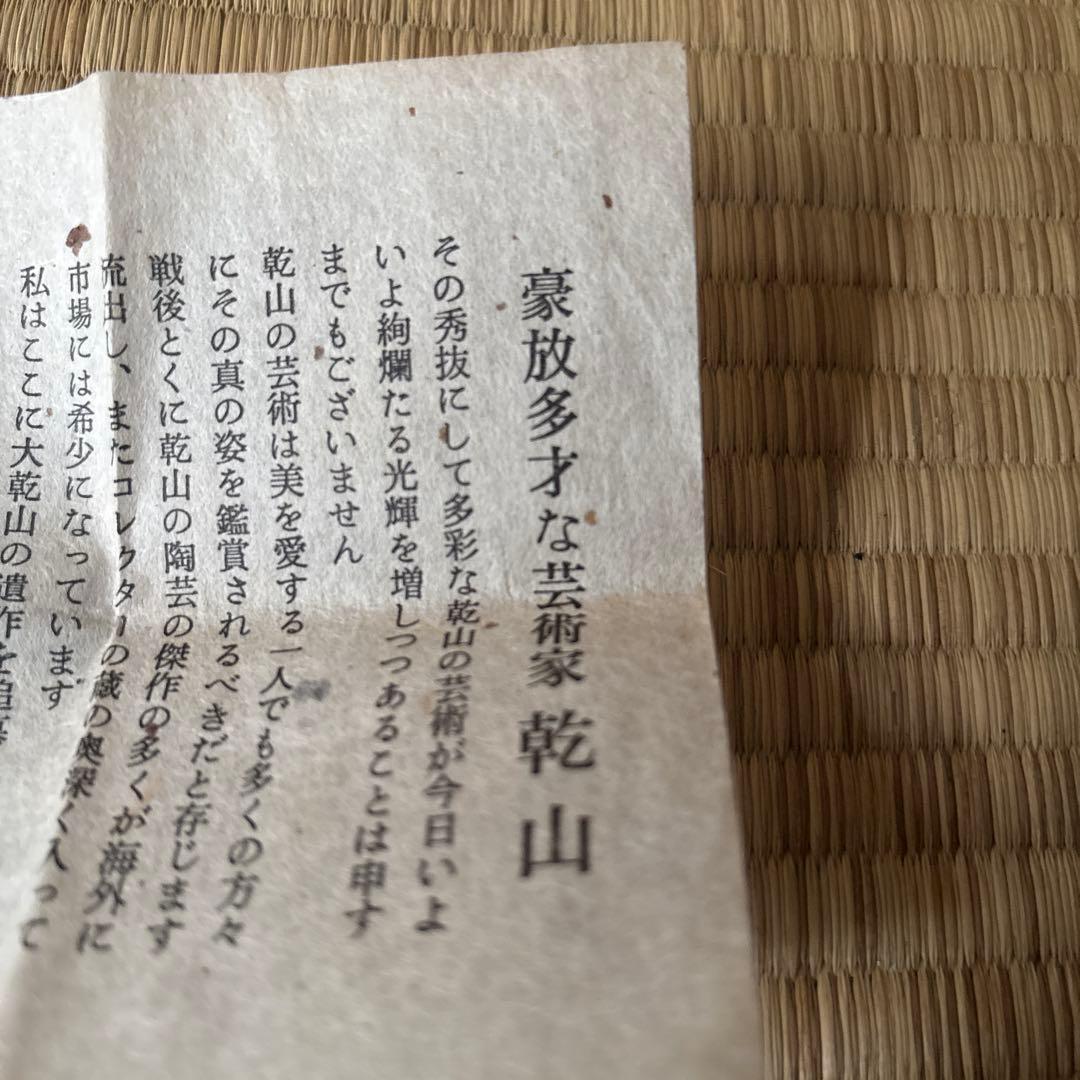 豪放多才な芸術家 乾山
その秀抜にして多彩な乾山の芸術が今日いよ
いよ絢爛たる光輝を増しつつあることは申す
までもございません
乾山の芸術は美を愛する一人でも多くの方々
にその真の姿を鑑賞されるべきだと存じます
戦後とくに乾山の陶芸の傑作の多くが海外に
流出し、またコレクターの蔵の奥深く入って
市場には希少になっています
私はここに大乾山の遺作を